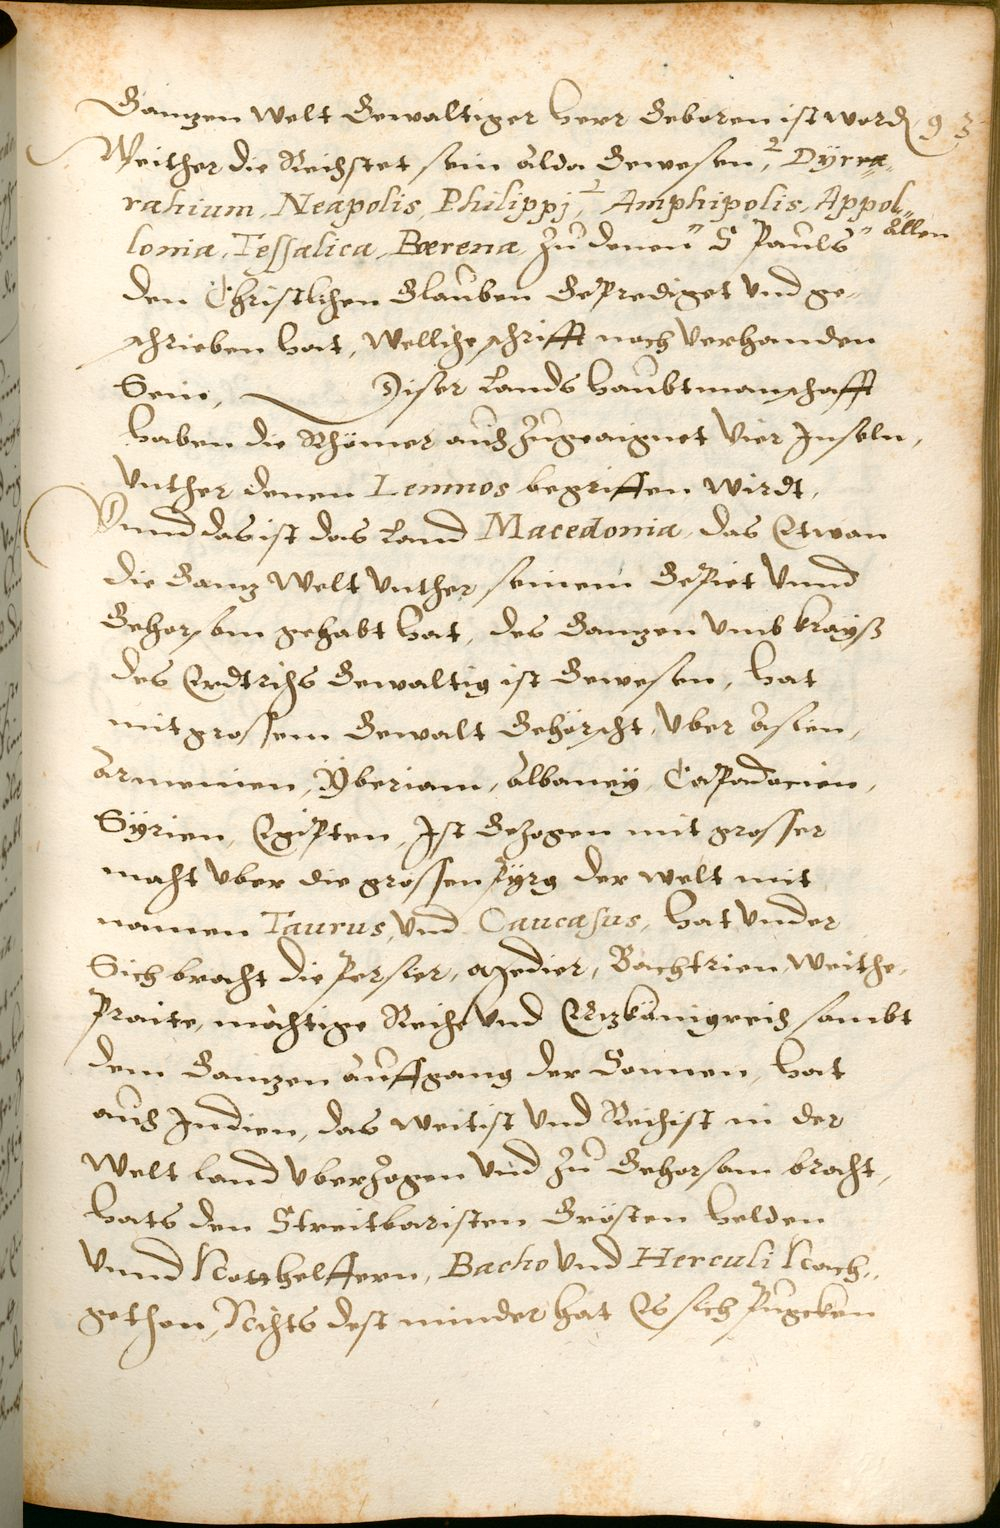 Ganzen welt Gewaltiger herr Geboren ist word 93
Weither die Reichstet sein alda Gewesen, Dÿrra-
rahium, Neapolis, Philippj, Amphipolis, Appol-
lonia, Tessalica, Bærena, Zu denen S Pauls allen
den Christlichen Glauben Geprediget und ge-
schrieben hat, Welliche schrifft noch verhanden
Sein, Diser Lands haubtmanschafft
haben die Rhömer auch Zugeaignet vier Inseln,
vnther denen Lemnos begriffen wirdt,
Vnnd das ist das Land Macedonia, das Etwan
die Ganz Welt vnther seinem Gepiet vnnd
Gehorsam gehabt hat, des Ganzen vmbkrayß
des Erdtrichs Gewaltig ist Gewesen, hat
mit grossem Gewalt Gehörscht, vber Asien,
Armenien, Ÿberiam, Albaneÿ, Capadocien,
Sÿrien, Egipten, Ist Gezogen mit grosser
macht vber die grossen Pÿrg der welt mit
namen Taurus, vnd Caucasus, hat vnder
Sich bracht die Persier, Medier, Bachtrien, Weithe,
Praite, mächtige Reich vnd Erzkönigreich sambt
dem Ganzen Auffgang der Sonnen, hat
auch Indien, das weitist vnd Reichist in der
Welt land vberzogen vnd Zu Gehorsam bracht,
hats den Streitbaristen Grösten helden
vnnd Notthelffern, Bacho vnd Herculi Nach-
gethon, Nichts dest minder hat Es sich